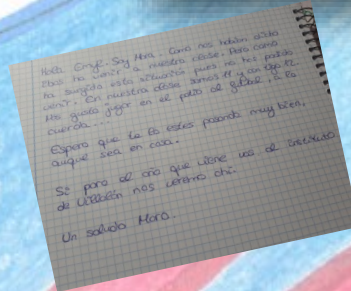 Hola Soy Mara. Como nos habían dicho
ibas ha venir a nuestra clase. Pero como
ha surgido esta situación pues no has podido
venir. En nuestra clase somos 11 y con
Nos gusta jugar en el patio al futbol, a la
cuerda...
Espero que te lo estes pasando muy bien,
auque sea en casa.
Si para el año que viene vas al instituto
de nos veremos ahí.
Un saludo Mara.